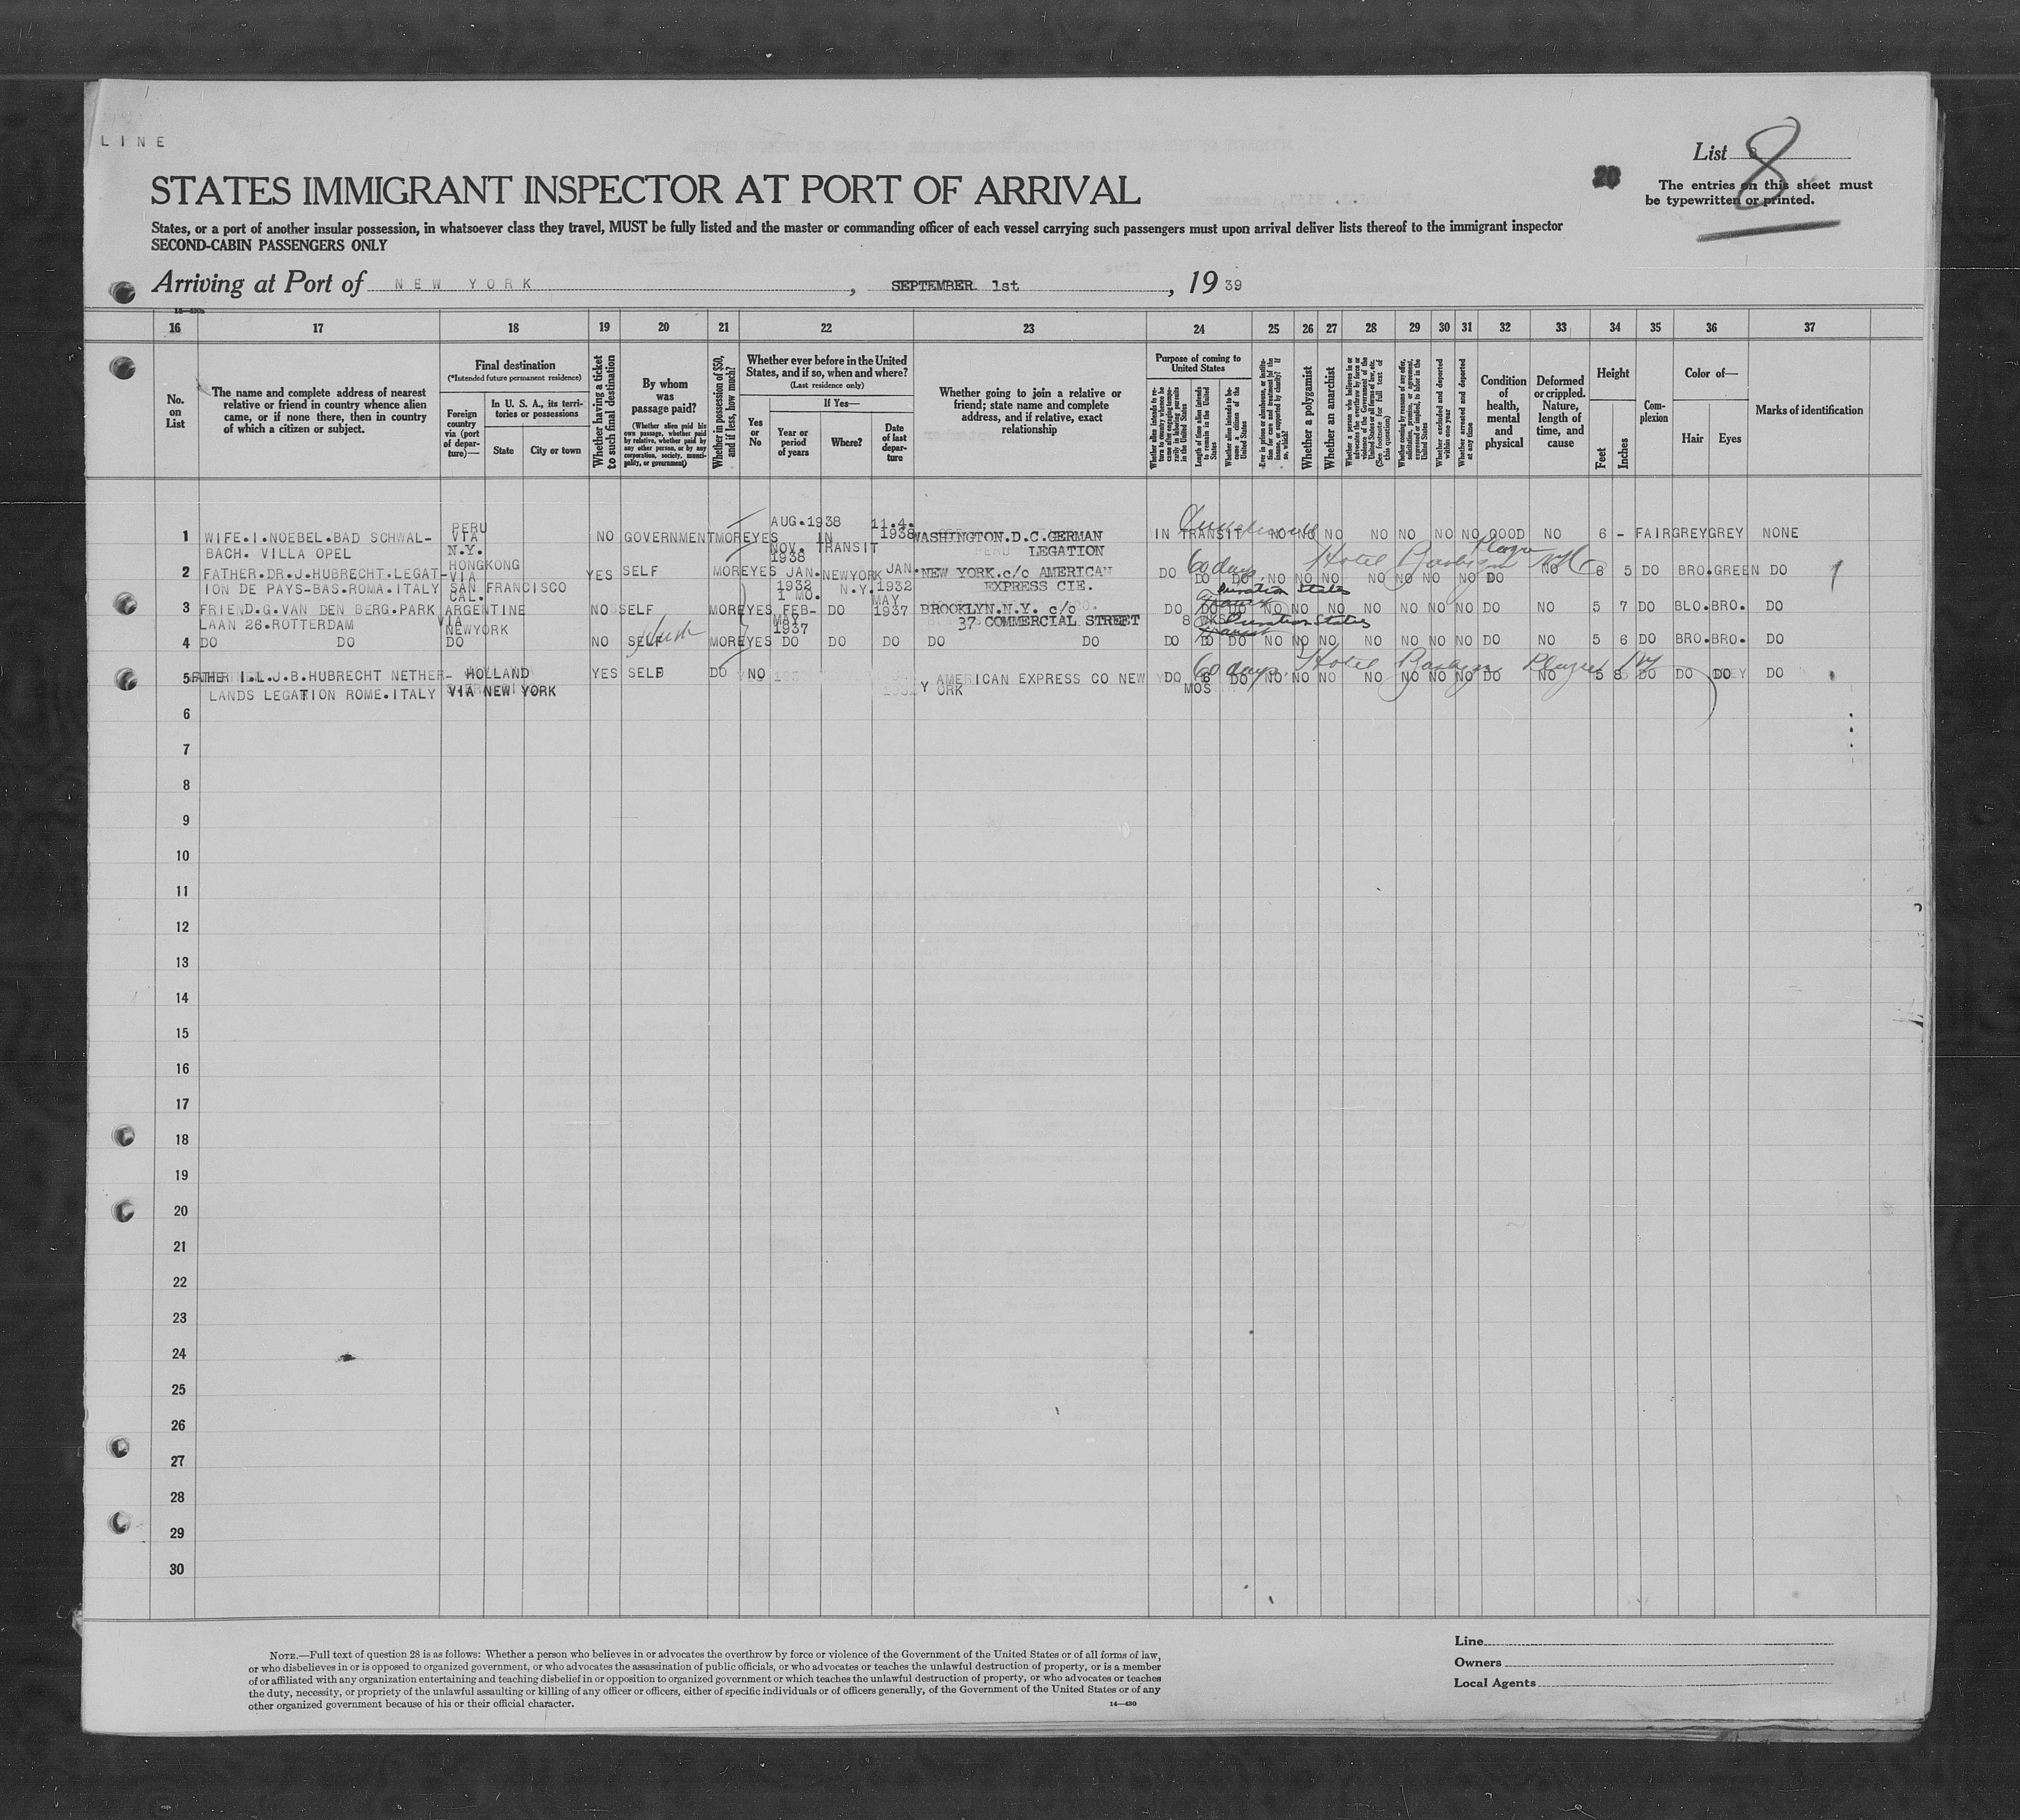 LINE
List 8
20
The entries on this sheet must
be typewritten or printed.
STATES IMMIGRANT INSPECTOR AT PORT OF ARRIVAL
States, or a port of another insular possession, in whatsoever class they travel, MUST be fully listed and the master or commanding officer of each vessel carrying such passengers must upon arrival deliver lists thereof to the immigrant inspector
SECOND-CABIN PASSENGERS ONLY
Arriving at Port of NEW YORK, SEPTEMBER 1st, 1939
16 17 18 19 20 21 22 23 24 25 26 27 28 29 30 31 32 33 34 35 36 37
No. on List
The name and complete address of nearest
relative or friend in country whence alien
came, or if none there, then in country
of which a citizen or subject.
Final destination
(*Intended future permanent residence)
Foreign country via (port of departure)—
In U. S. A., its territories or possessions
State
City or town
Whether having a ticket to such final destination
By whom was passage paid?
(Whether alien paid his own passage, whether paid by relative, whether paid by any other person, or by any corporation, society, municipality, or government)
Whether in possession of $50, and if less, how much?
Whether ever before in the United States, and if so, when and where?
(Last residence only)
Yes or No
If Yes—
Year or period of years
Where?
Date of last departure
Whether going to join a relative or
friend; state name and complete
address, and if relative, exact
relationship
Purpose of coming to United States
Length of time alien intends to remain in the United States
Whether alien intends to become a citizen of the United States
Whether a polygamist
Whether an anarchist
Whether excluded and deported within one year
Whether arrested and deported at any time
Condition of health, mental and physical
Deformed or crippled. Nature, length of time, and cause
Height
Feet
Inches
Complexion
Color of—
Hair
Eyes
Marks of identification
1 WIFE.I.NOEBEL.BAD SCHWAL-
BACH. VILLA OPEL
PERU VIA N.Y.
NO GOVERNMENT MORE YES AUG.1938 NOV. 1938 IN TRANSIT 11.4. 1938
WASHINGTON.D.C.GERMAN
LEGATION
IN TRANSIT NO NO NO NO NO NO NO GOOD NO 6 - FAIR GREY GREY NONE
2 FATHER.DR.J.HUBRECHT.LEGAT-
ION DE PAYS-BAS.ROMA.ITALY
HONGKONG VIA SAN FRANCISCO CAL.
YES SELF MORE YES JAN. 1932 1 MO. NEWYORK N.Y. JAN. 1932
NEW YORK.c/c AMERICAN
EXPRESS CIE.
60 days Hotel
DO DO DO NO NO NO NO NO NO NO DO NO 6 5 DO BRO. GREEN DO
3 FRIEND.G.VAN DEN BERG.PARK
LAAN 26.ROTTERDAM
ARGENTINE VIA NEWYORK
NO SELF MORE YES FEB- MAY 1937 DO MAY 1937
BROOKLYN.N.Y. c/c
37 COMMERCIAL STREET
Duration States
DO DO DO NO NO NO NO NO NO NO DO NO 5 7 DO BLO. BRO. DO
8 WKS
Duration States
4 DO DO DO NO SELF MORE YES DO DO DO DO DO DO DO DO NO NO NO NO NO NO NO DO NO 5 6 DO BRO. BRO. DO
5 FATHER I.L.J.B.HUBRECHT NETHER-
LANDS LEGATION ROME.ITALY
HOLLAND
VIA NEW YORK
YES SELF DO NO
AMERICAN EXPRESS CO NEW
YORK
60 days Hotel
DO 6 MOS DO NO NO NO NO NO NO NO DO NO 5 8 DO DO DO DO
6
7
8
9
10
11
12
13
14
15
16
17
18
19
20
21
22
23
24
25
26
27
28
29
30
NOTE.—Full text of question 28 is as follows: Whether a person who believes in or advocates the overthrow by force or violence of the Government of the United States or of all forms of law,
or who disbelieves in or is opposed to organized government, or who advocates the assassination of public officials, or who advocates or teaches the unlawful destruction of property, or is a member
of or affiliated with any organization entertaining and teaching disbelief in or opposition to organized government or which teaches the unlawful destruction of property, or who advocates or teaches
the duty, necessity, or propriety of the unlawful assaulting or killing of any officer or officers, either of specific individuals or of officers generally, of the Government of the United States or of any
other organized government because of his or their official character.
14—430
Line
Owners
Local Agents